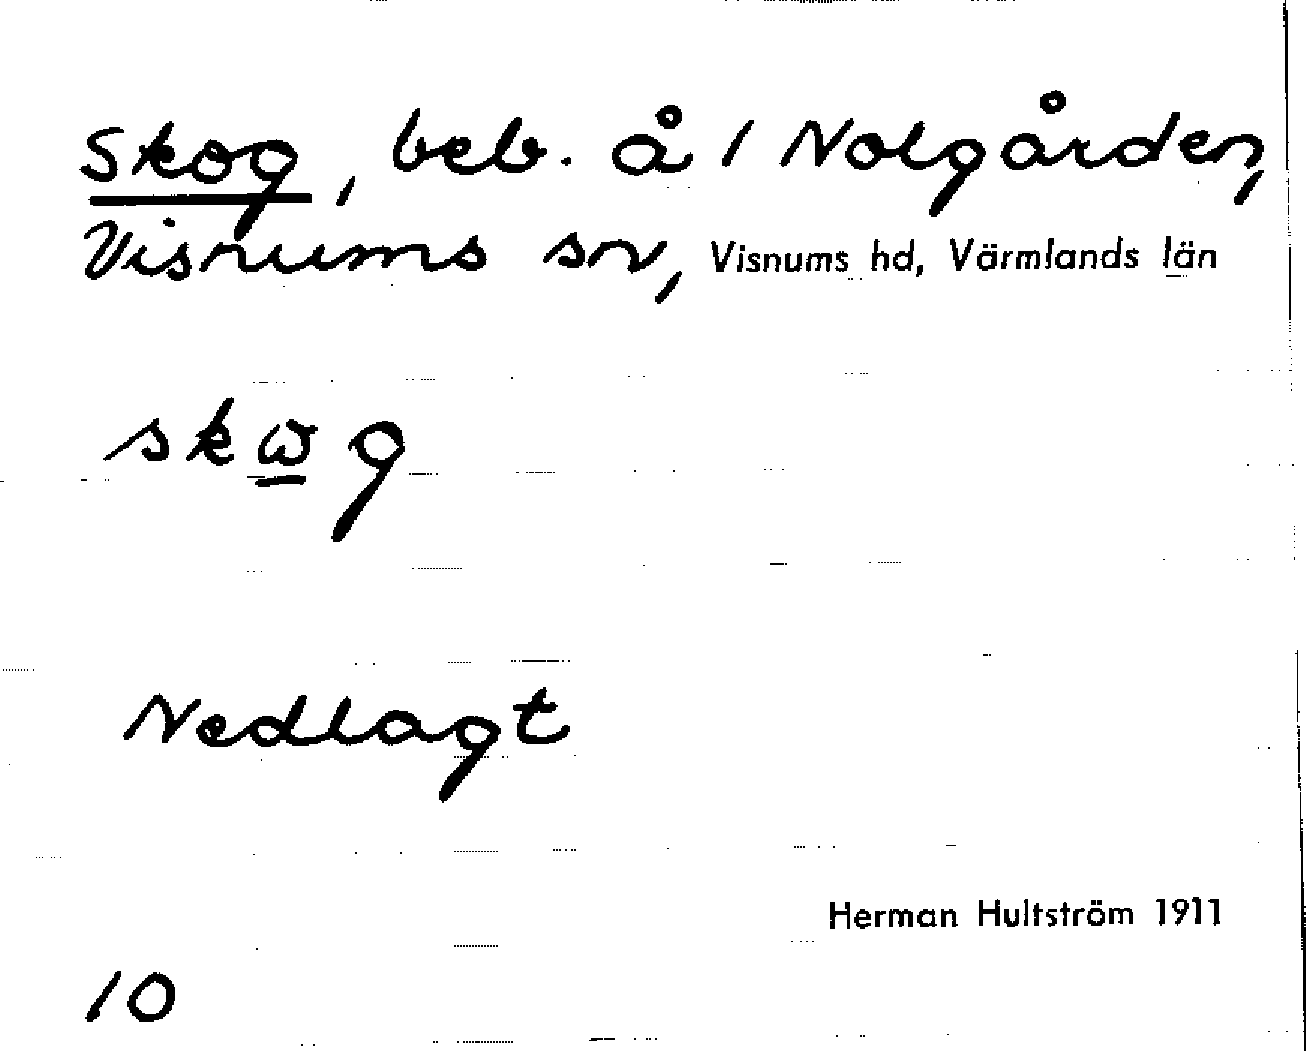 Skog, beb. å 1 Nolgården,
Visnums sn, Visnums hd, Värmlands län
skωg
Nedlagt
Herman Hultström 1911
10